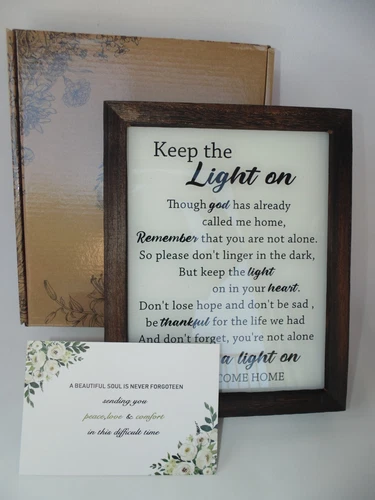 Keep the
Light on
Though god has already
called me home,
Remember that you are not alone.
So please don't linger in the dark,
But keep the light
on in your heart.
Don't lose hope and don't be sad ,
be thankful for the life we had
And don't forget, you're not alone
a light on
COME HOME
A BEAUTIFUL SOUL IS NEVER FORGOTEEN
sending you
peace,love & comfort
in this difficult time